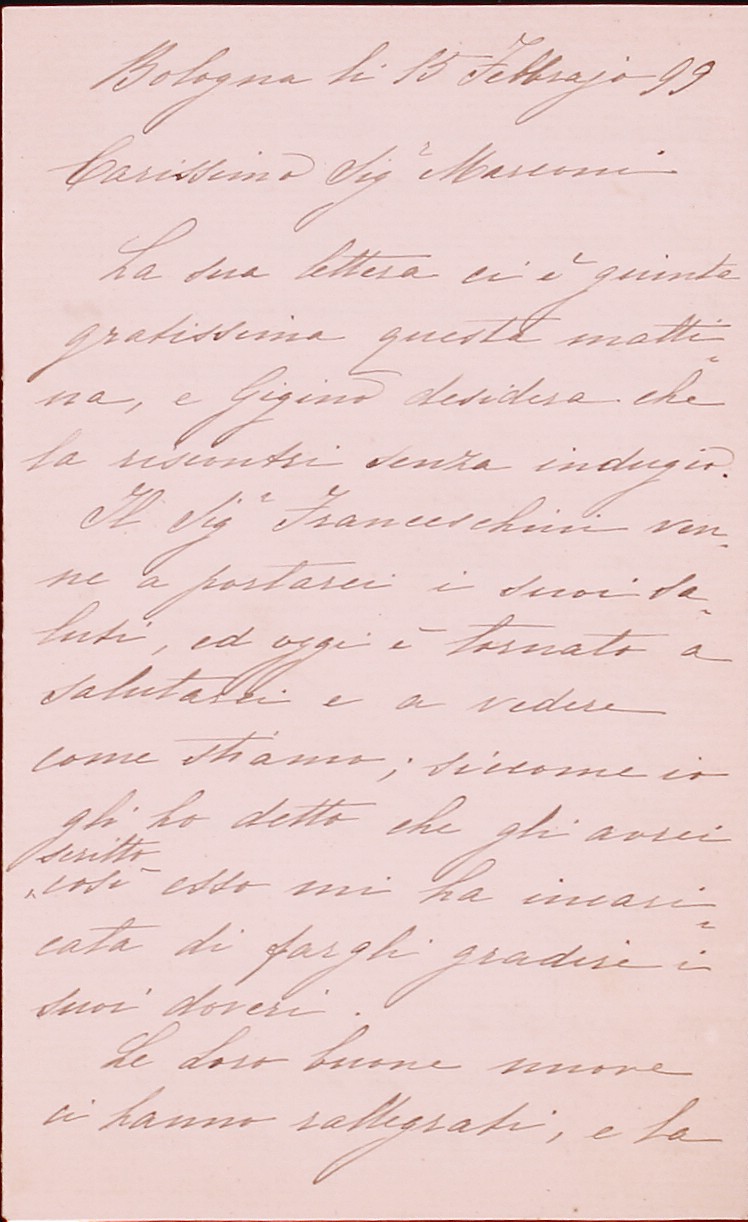 Bologna li 15 Febbrajo 99
Carissimo Sigr Marconi
La sua lettera ci è giunta
gratissima questa matti-
na, e Gigino desidera che
la riscontri senza indugio.
Il Sigr Franceschini ven-
ne a portarci i suoi sa-
luti, ed oggi è tornato a
salutarci e a vedere
come stiamo; siccome io
gli ho detto che gli avrei
scritto
così esso mi ha incari-
cata di fargli gradire i
suoi doveri.
Le loro buone nuove
ci hanno rallegrati, e la